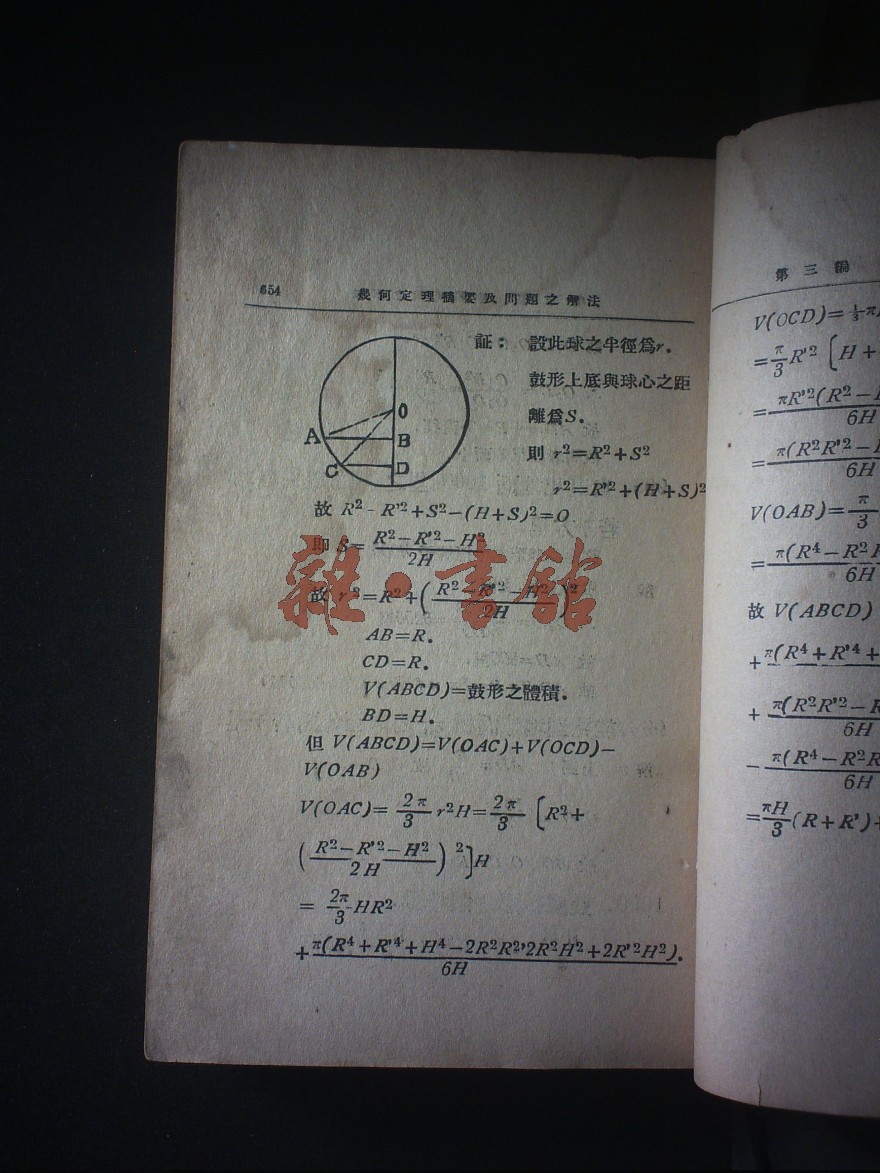 654
幾何定理摘要及問題之解法
証: 設此球之半徑爲r.
鼓形上底與球心之距
離爲S.
則 r²=R²+S²
r²=R'²+(H+S)²
O
A
B
C
D
故 R²-R'²+S²-(H+S)²=0
即 S= (R²-R'²-H²)/2H
故 r²=R²+((R²-R'²-H²)/2H)²
AB=R.
CD=R.
V(ABCD)=鼓形之體積.
BD=H.
但 V(ABCD)=V(OAC)+V(OCD)-
V(OAB)
V(OAC)= 2π/3 r²H= 2π/3 [R²+
((R²-R'²-H²)/2H)²]H
= 2π/3 HR²
+ π(R⁴+R'⁴+H⁴-2R²R²'2R²H²+2R'²H²)/6H.
雜·書館
第三編
V(OCD)= ⅓π
= π/3 R'² [H+
= πR'²(R²-/6H
= π(R²R'²-/6H
V(OAB)= π/3
= π(R⁴-R²/6H
故 V(ABCD)
+ π(R⁴+R'⁴+
+ π(R²R'²-/6H
- π(R⁴-R²R/6H
= πH/3 (R+R')+